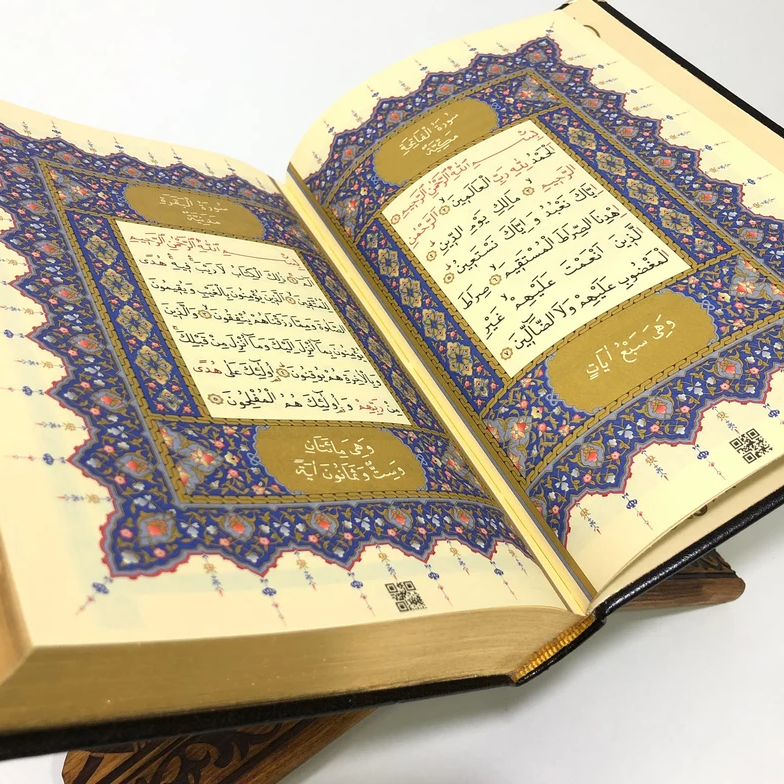 سورة الفاتحة
مكية
بسم الله الرحمن
الرحيم ۝١ الحمد لله رب العالمين ۝٢ الرحمن
الرحيم ۝٣ مالك يوم الدين ۝٤
اياك نعبد و اياك نستعين ۝٥
اهدنا الصراط المستقيم ۝٦ صراط
الذين انعمت عليهم غير
المغضوب عليهم ولا الضالين ۝٧
وهي سبع آيات
سورة البقرة
مدنية
بسم الله الرحمن الرحيم
ذلك الكتاب لا ريب فيه هدى
للمتقين الذين يؤمنون بالغيب ويقيمون
الصلوة ومما رزقناهم ينفقون والذين
يؤمنون بما انزل اليك وما انزل من قبلك
وبالآخرة هم يوقنون اولئك على هدى
من ربهم و اولئك هم المفلحون
وهي مائتان
وست وثمانون آية